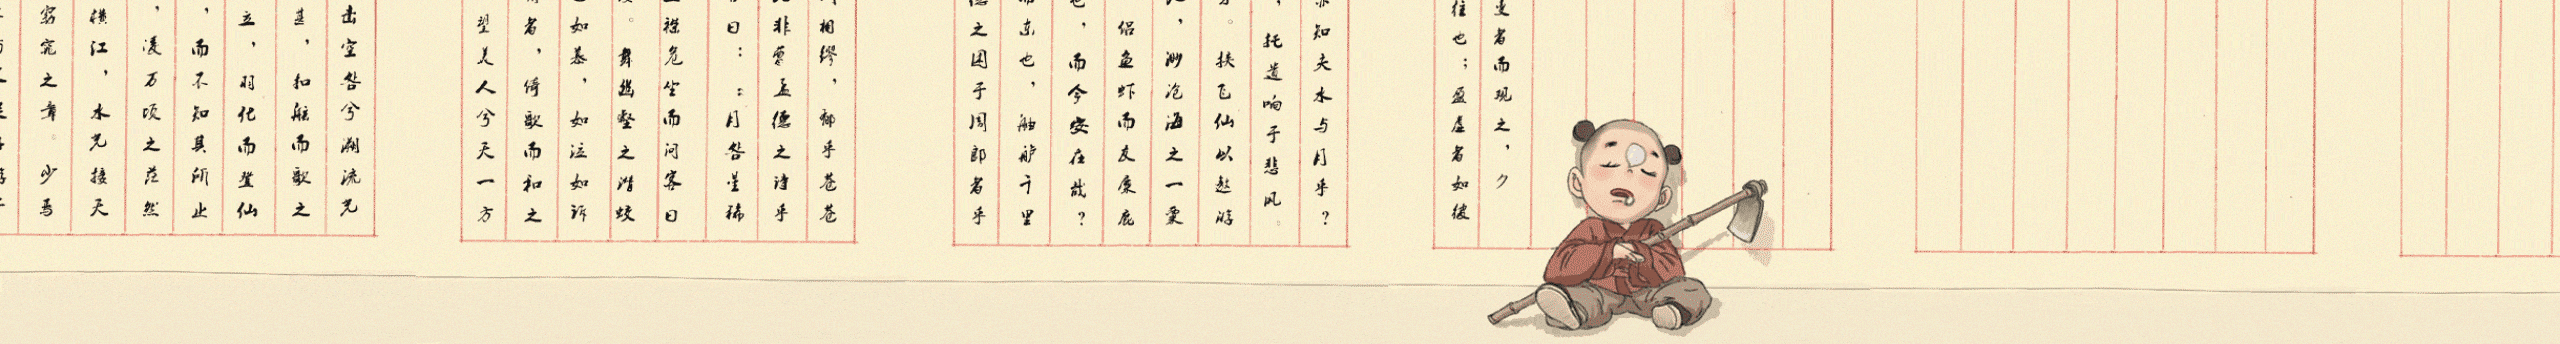 窈窕之章。少焉
横江,水光接天
,凌万顷之茫然
,而不知其所止
立,羽化而登仙
甚,扣舷而歌之
击空明兮溯流光
望美人兮天一方
者,倚歌而和之
如慕,如泣如诉
。舞幽壑之潜蛟
襟危坐而问客曰
曰::月明星稀
非曹孟德之诗乎
相缪,郁乎苍苍
之困于周郎者乎
东也,舳舻千里
,而今安在哉?
侣鱼虾而友麋鹿
,渺沧海之一粟
。挟飞仙以遨游
,托遗响于悲风。
知夫水与月乎?
往也;盈虚者如彼
变者而观之,夕